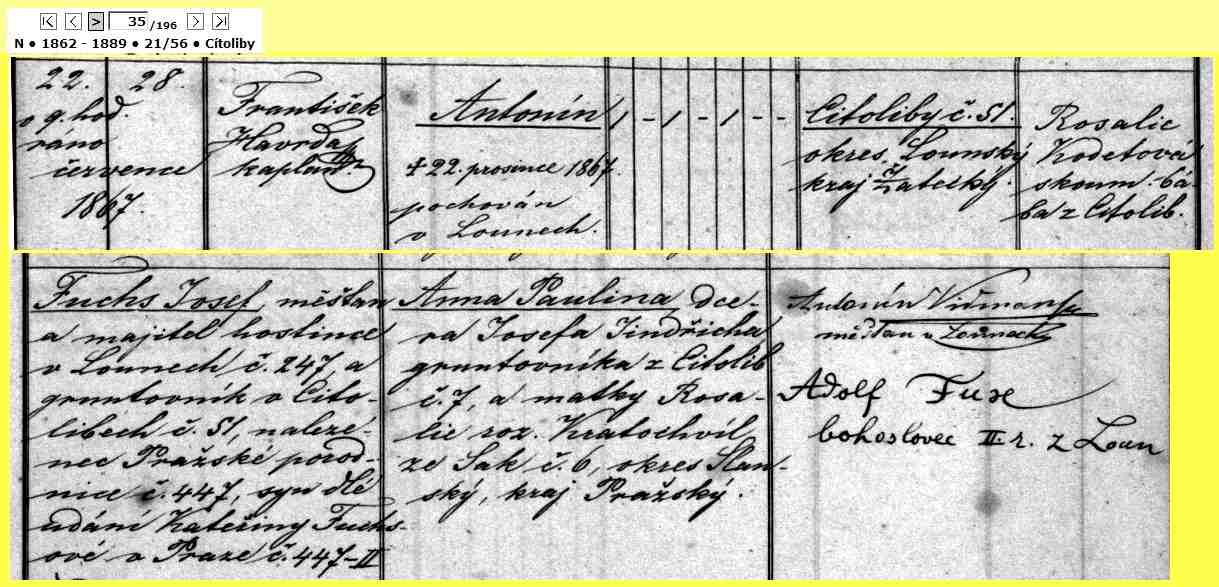 35 /196
N ● 1862 - 1889 ● 21/56 ● Cítoliby
22. 28.
o 9. hod.
ráno
července
1867.
František
Havrda
kaplan
Antonín
+ 22. prosince 1867.
pochován
v Lounech.
1 - 1 - 1 - -
Citoliby č. 51.
okres Lounský
kraj Žatecký.
Rosalie
Kodetová
zkoum. bá-
ba z Citolib.
Fuchs Josef, měštan
a majitel hostince
v Lounech č. 247, a
gruntovník v Cito-
libech č. 51, naleze-
nec Pražské porod-
nice č. 447, syn dlé
udání Kateřiny Fuchs-
ové v Praze č. 447-II
Anna Paulina, dce-
ra Josefa Jindřicha
gruntovníka z Citolib
č. 7, a matky Rosa-
lie roz. Kratochvíl
ze Sak č. 6, okres Slan-
ský, kraj Pražský.
Antonín
měštan v Lounech
Adolf Fux
bohoslovec II. r. z Loun